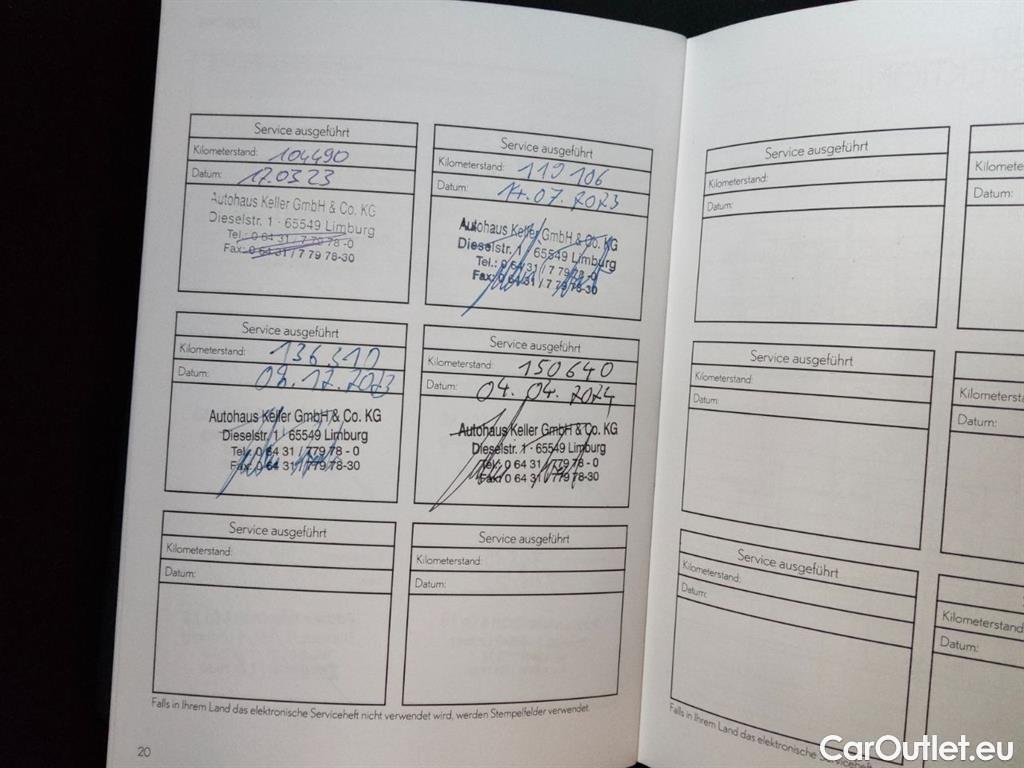 Service ausgeführt
Kilometerstand: 104490
Datum: 17.03.23
Autohaus Keller GmbH & Co. KG
Dieselstr. 1 · 65549 Limburg
Tel.: 0 64 31 / 7 79 78 -0
Fax: 0 64 31 / 7 79 78-30
Service ausgeführt
Kilometerstand: 119 106
Datum: 14.07.2023
Autohaus Keller GmbH & Co. KG
Dieselstr. 1 · 65549 Limburg
Tel.: 0 64 31 / 7 79 78 -0
Fax: 0 64 31 / 7 79 78-30
Service ausgeführt
Kilometerstand: 136 310
Datum: 08.12.2023
Autohaus Keller GmbH & Co. KG
Dieselstr. 1 · 65549 Limburg
Tel.: 0 64 31 / 779 78 - 0
Fax: 0 64 31 / 779 78-30
Service ausgeführt
Kilometerstand: 150640
Datum: 04.04.2024
Autohaus Keller GmbH & Co. KG
Dieselstr. 1 · 65549 Limburg
Tel.: 0 64 31 / 779 78 - 0
Fax: 0 64 31 / 779 78-30
Service ausgeführt
Kilometerstand:
Datum:
Service ausgeführt
Kilometerstand:
Datum:
Falls in Ihrem Land das elektronische Serviceheft nicht verwendet wird, werden Stempelfelder verwendet.
20
Service ausgeführt
Kilometerstand:
Datum:
Kilometerstand
Datum:
Service ausgeführt
Kilometerstand:
Datum:
Kilometerstand
Datum:
Service ausgeführt
Kilometerstand:
Datum:
Kilometerstand
Datum:
Falls in Ihrem Land das elektronische Serviceheft
CarOutlet.eu